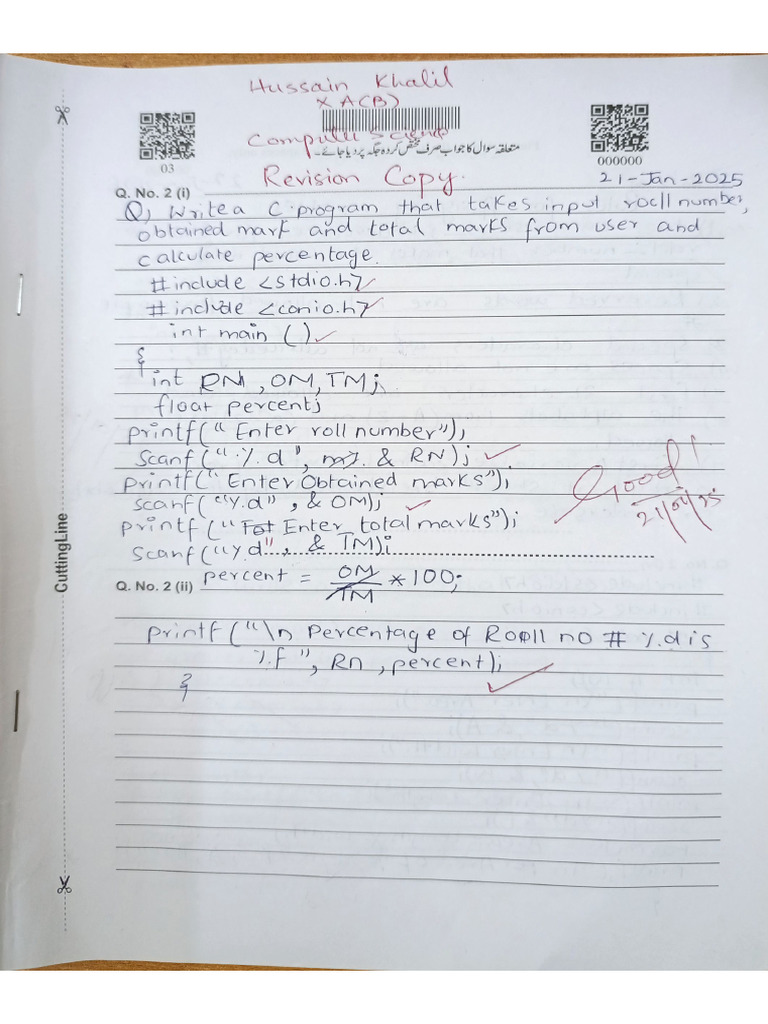 Hussain Khalil
X A(B)
Computer Science
متعلقہ سوال کا جواب صرف مختص کردہ جگہ پر دیا جائے۔
03
000000
Revision Copy.
21-Jan-2025
Q. No. 2 (i)
Q, Write a C program that takes input rocll number,
obtained mark and total marks from user and
calculate percentage.
#include <stdio.h>
#include <conio.h>
int main ()
{
int RN, OM, TM;
float percent;
printf("Enter roll number");
scanf("%d", & RN);
printf("Enter Obtained marks");
scanf("%d", & OM);
printf("Tot Enter total marks");
Scanf("%d", & TM);
Good!
21/01/25
CuttingLine
Q. No. 2 (ii)
percent = OM/TM * 100;
printf("\n Percentage of Roll no # %d is
%f", Rn, percent);
}